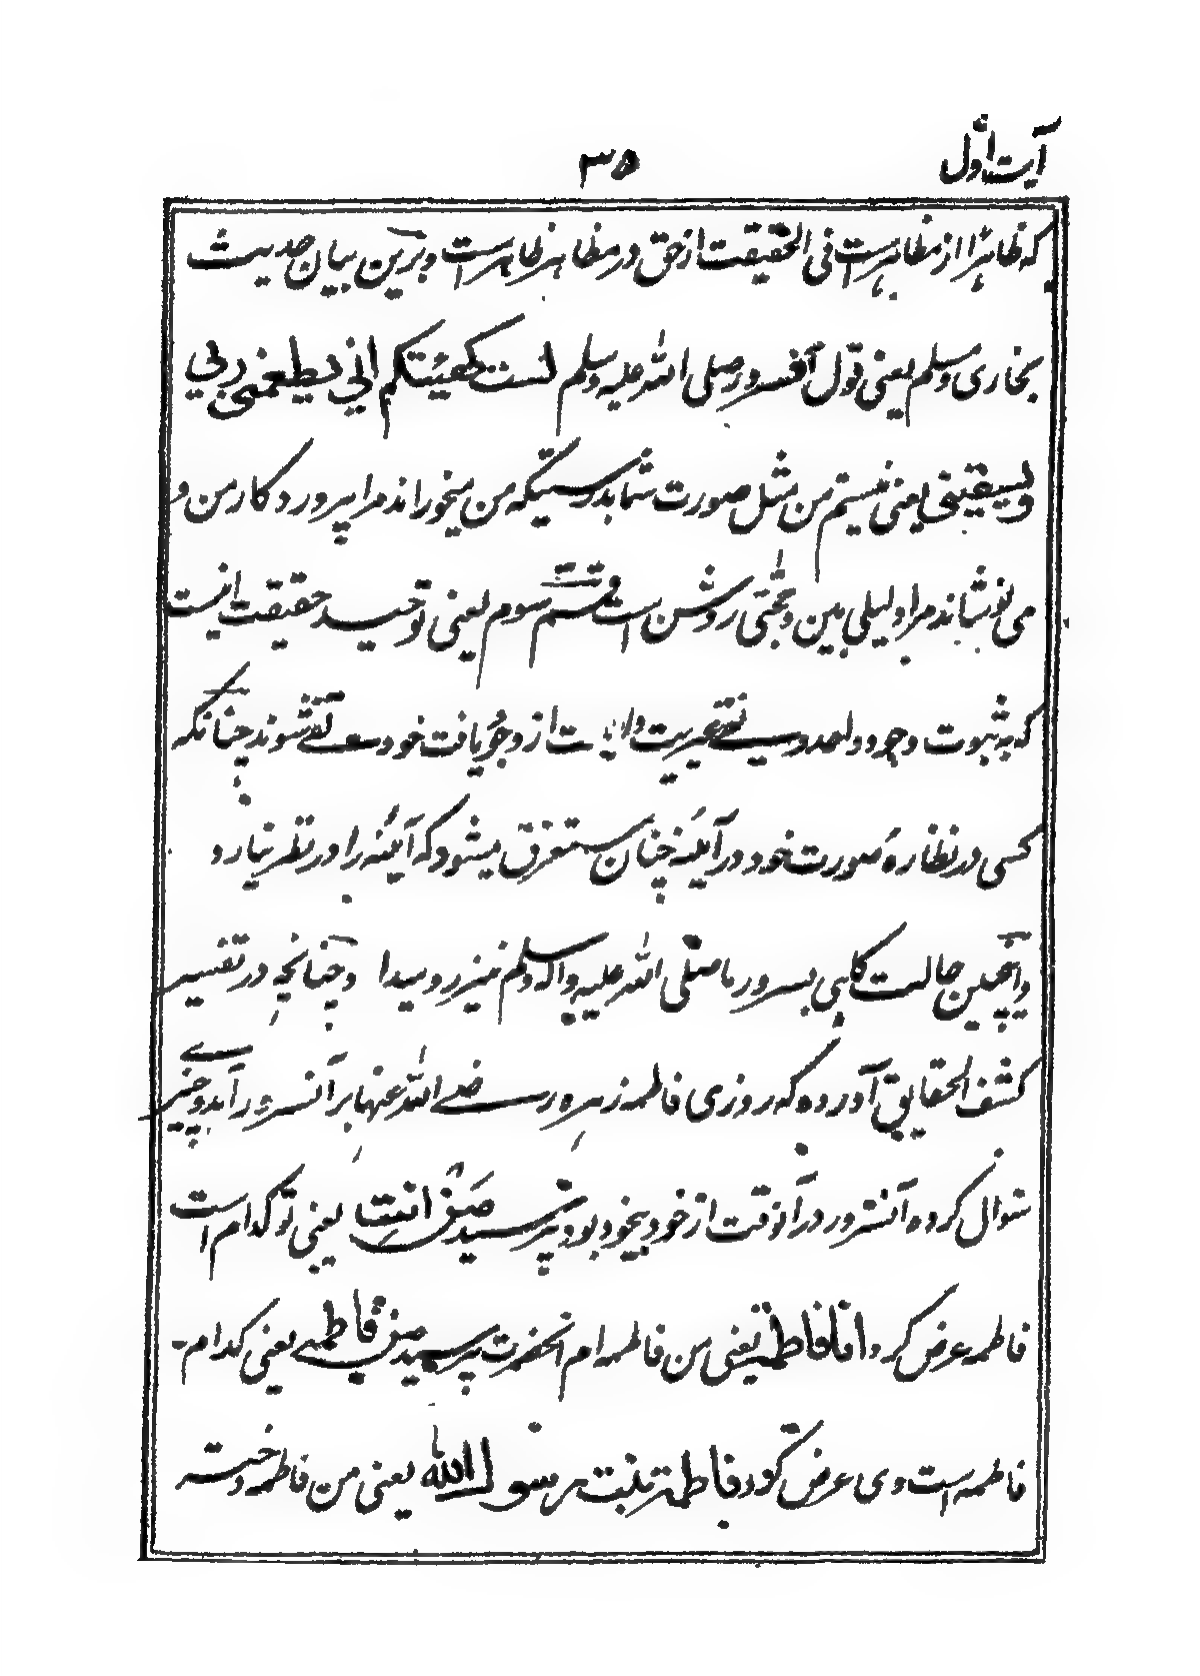 آیت اوّل
۳۵
که ظاهرا از مظاهر است فی الحقیقت از حق در مظاهر ظاهر است و برین بیان حدیث
بخاری و مسلم یعنی قول آنسرور صلی الله علیه وسلم لست کهیئتکم انی یطعمنی ربی
ویسقینی یعنی نیستم من مثل صورت شما بدرستیکه من میخوراند مرا پروردگار من و
می نوشاند مرا دلیلی مبین و حجتی روشن است قسم سوم یعنی توحید حقیقت اینست
که به ثبوت وجود غیریت از خود شوند چنانکه
کسی در نظاره صورت خود در آئینه چنان مستغرق میشود که آئینه را در نظر نیارد
و اینچنین حالت گاهی بسرور ما صلی الله علیه وآله وسلم نیز رو میداد چنانچه در تفسیر
کشف الحقایق آورده که روزی فاطمه زهره رضی الله عنها بر آنسرور آمد و چیزی
سوال کرد آنسرور در آنوقت از خود بیخود بود پرسید من انت یعنی تو کدام است
فاطمه عرض کرد انا فاطمة یعنی من فاطمه ام آنحضرت پرسید من فاطمة یعنی کدام
فاطمه است وی عرض کرد فاطمة بنت رسول الله یعنی من فاطمه دختر